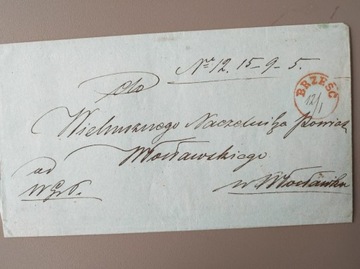 Nr 12. 15-9-5.
BRZEŚĆ
12/1
Do
Wielmożnego Naczelnika Powiatu
Włocławskiego
od
w Włocławku